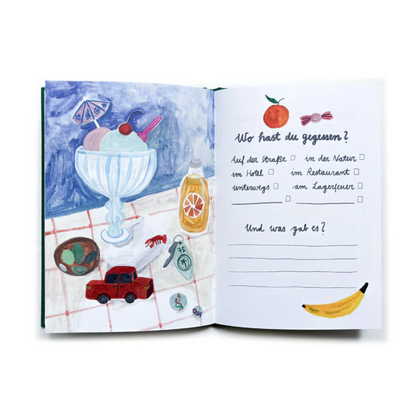 Wo hast du gegessen?
Auf der Straße □ in der Natur □
im Hotel □ im Restaurant □
unterwegs □ am Lagerfeuer □
Und was gab es?